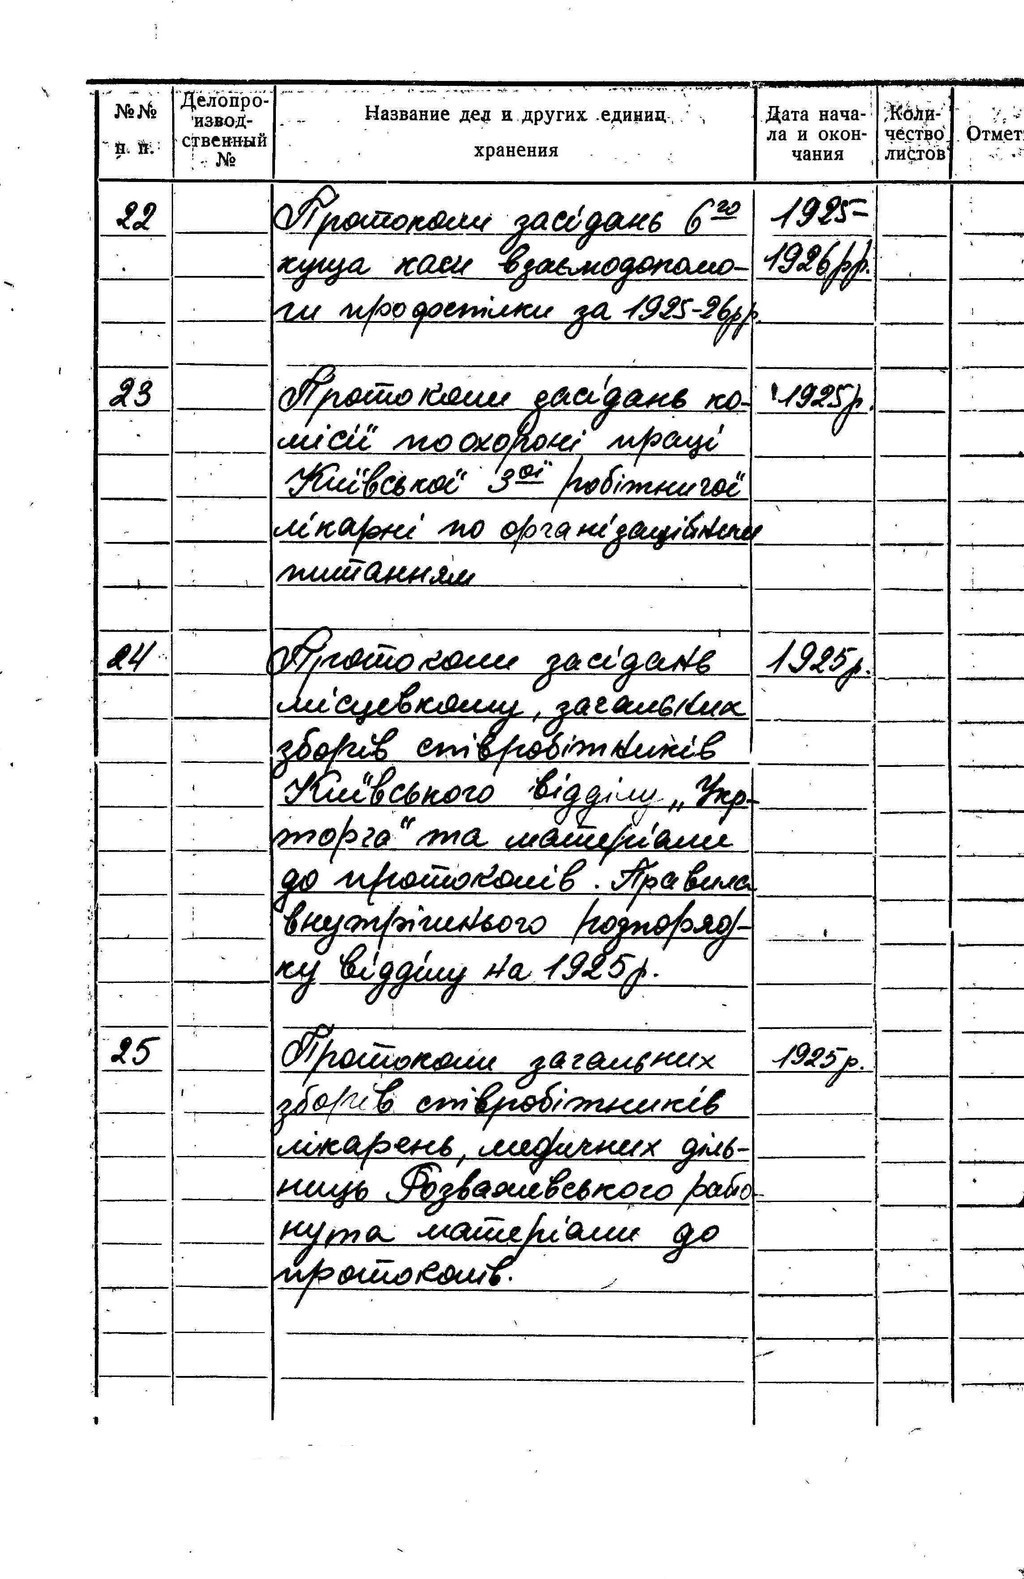 №№ п. п.
Делопро-
извод-
ственный
№
Название дел и других единиц
хранения
Дата нача-
ла и окон-
чания
Коли-
чество
листов
Отмет
22
Протоколи засідань 6го
куща каси взаємодопомо-
ги профспілки за 1925-26рр.
1925-
1926рр.
23
Протоколи засідань ко-
місії по охороні праці
Київської 3ої робітничої
лікарні по організаційним
питанням
1925р.
24
Протоколи засідань
місцевкому, загальних
зборів співробітників
Київського відділу „Укр-
торга" та матеріали
до протоколів. Правила
внутрішнього розпоряд-
ку відділу на 1925р.
1925р.
25
Протоколи загальних
зборів співробітників
лікарень, медичних діль-
ниць Розважевського райо-
ну та матеріали до
протоколів.
1925р.